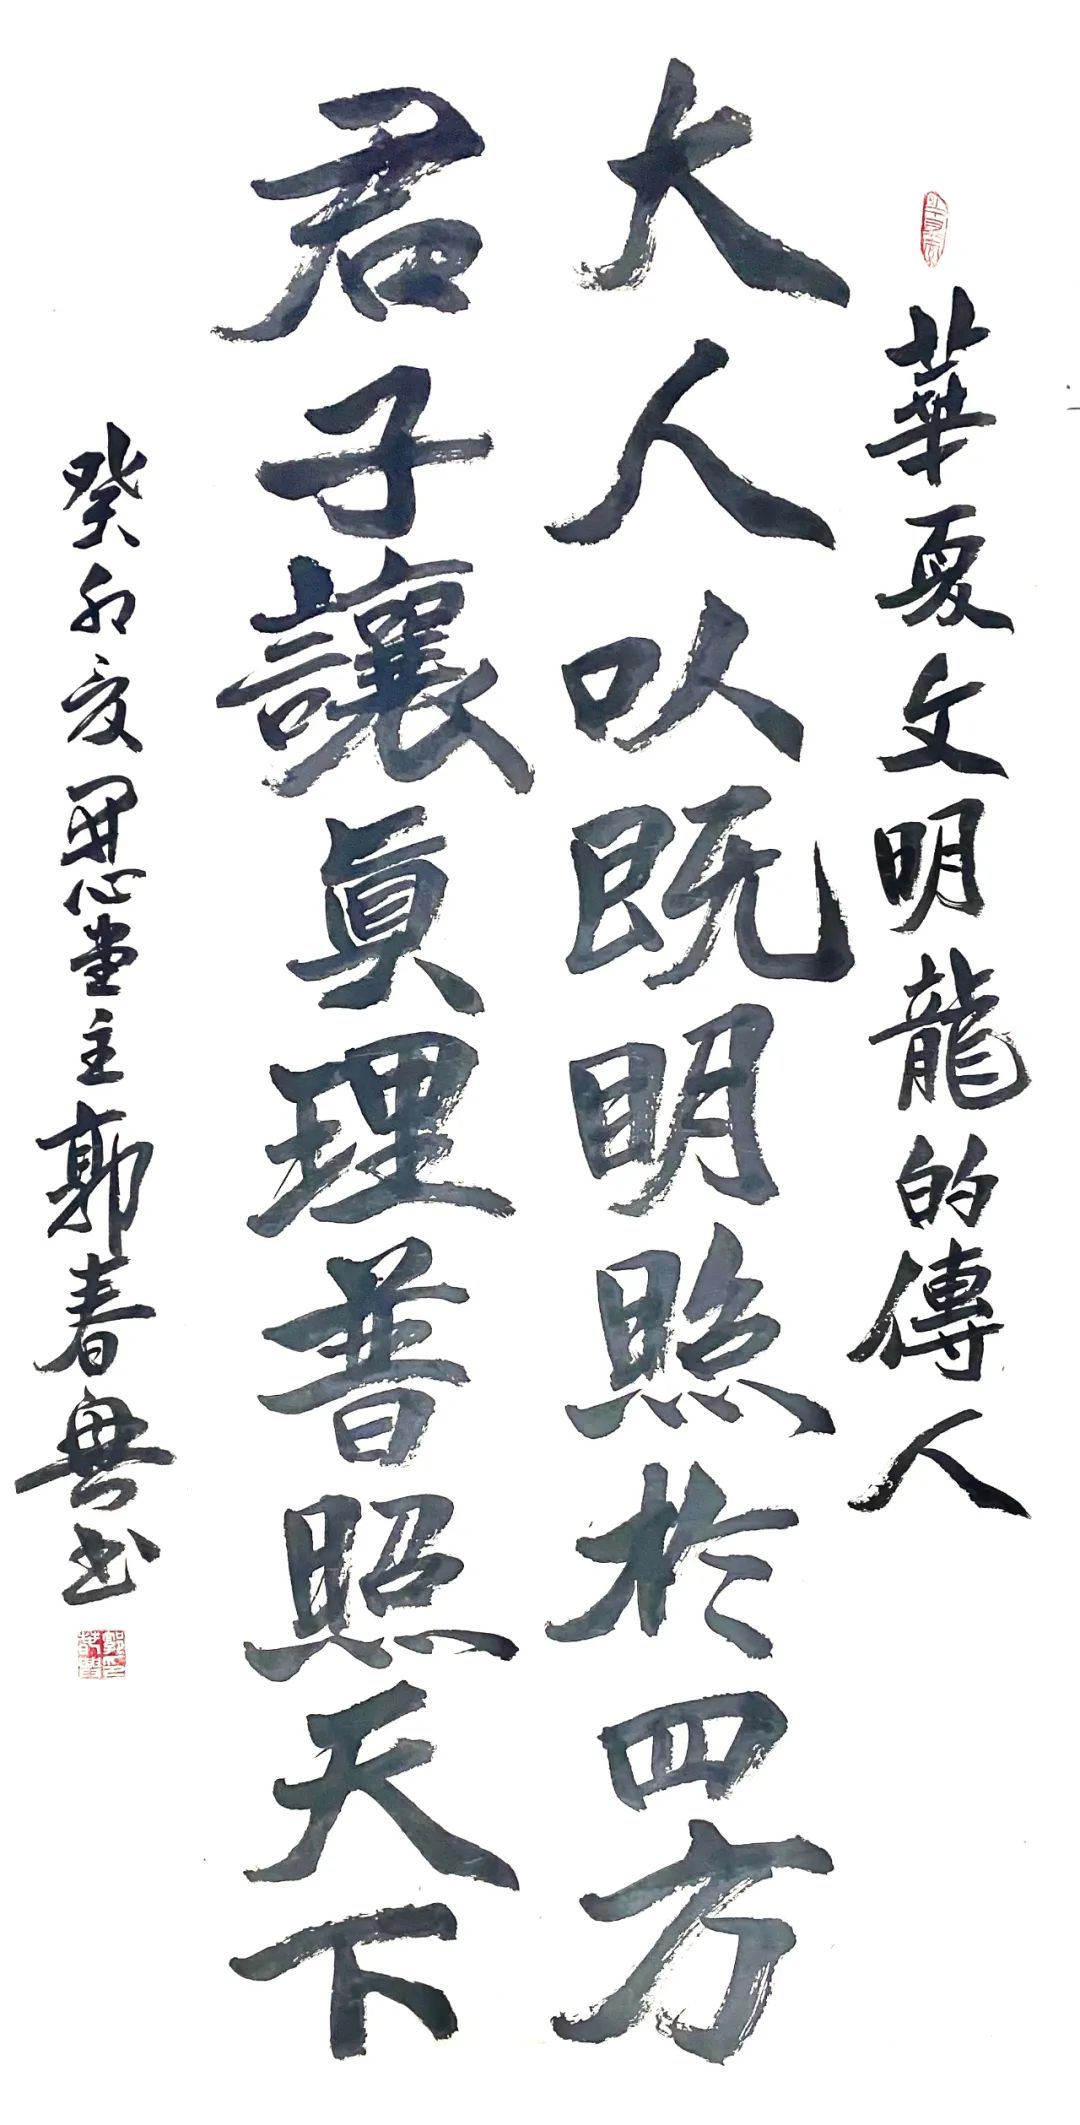 華夏文明龍的傳人
大人以既明照於四方
君子讓眞理普照天下
癸卯夏堂主郭春書